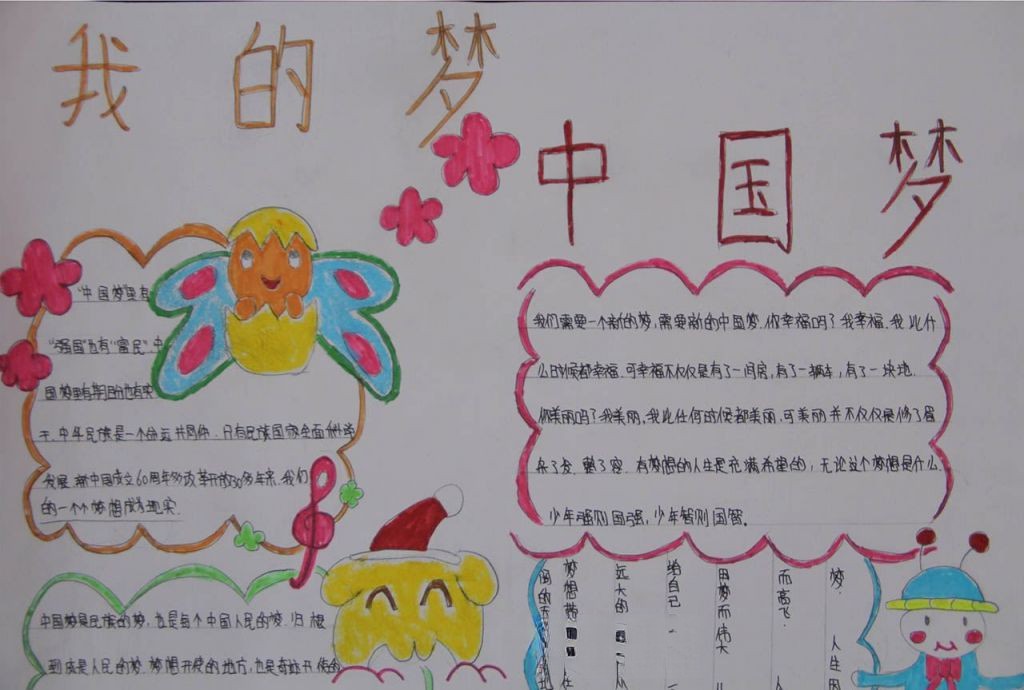 我的梦
中国梦
"中国梦"里有
"强国"也有"富民".中
国梦里有期盼也有实
干.中华民族是一个命运共同体.只有民族国家全面科学
发展.新中国成立60周年多改革开放30多年来.我们
的一个个梦想成为现实.
我们需要一个新的梦,需要新的中国梦.你幸福吗?我幸福.我比什
么时候都幸福.可幸福不仅仅是有了一间房,有了一辆车,有了一块地.
你美丽吗?我美丽,我比任何时候都美丽.可美丽并不仅仅是修了眉
染了发.整了容.有梦想的人生是充满希望的,无论这个梦想是什么.
少年强则国强,少年智则国智。
中国梦是民族的梦,也是每个中国人民的梦.归根
到底是人民的梦.梦想开始的地方,也是奇迹开始的
梦.人生因
而高飞.人
因梦而伟大
给自己
远大的
梦想带